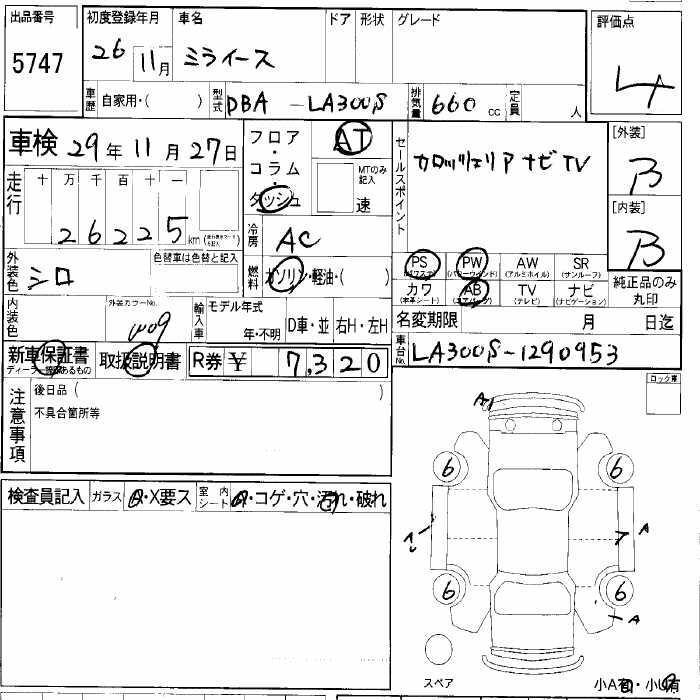 出品番号 初度登録年月 車名 ドア 形状 グレード 評価点
5747 26 11月 ミライース 4
車歴 自家用・( ) 型式 DBA - LA300S 排気量 660 cc 定員 人
車検 29年 11月 27日 フロア・コラム・ダッシュ AT MTのみ記入 速 セールスポイント カロッツェリア ナビ TV [外装] B
走行 十 万 千 百 十 一
26225 km
[内装] B
冷房 AC
外装色 シロ 色替車は色替と記入 燃料 ガソリン・軽油・( )
PS (パワステ) PW (パワーウインド) AW (アルミホイル) SR (サンルーフ)
カワ (本革シート) AB (エアバッグ) TV (テレビ) ナビ (ナビゲーション) 純正品のみ丸印
内装色 外装カラーNo. W09 輸入車 モデル年式 年・不明 D車・並 右H・左H 名変期限 月 日迄
新車保証書 ディーラー 取扱説明書 R券 ¥ 7,320 車台No. LA300S-1290953
注意事項 後日品 ( )
不具合箇所等
ロック車
検査員記入 ガラス A・X要ス 室内シート A・コゲ・穴・汚れ・破れ
A1
6 6
A
6 6
A
スペア 小A有・小U有